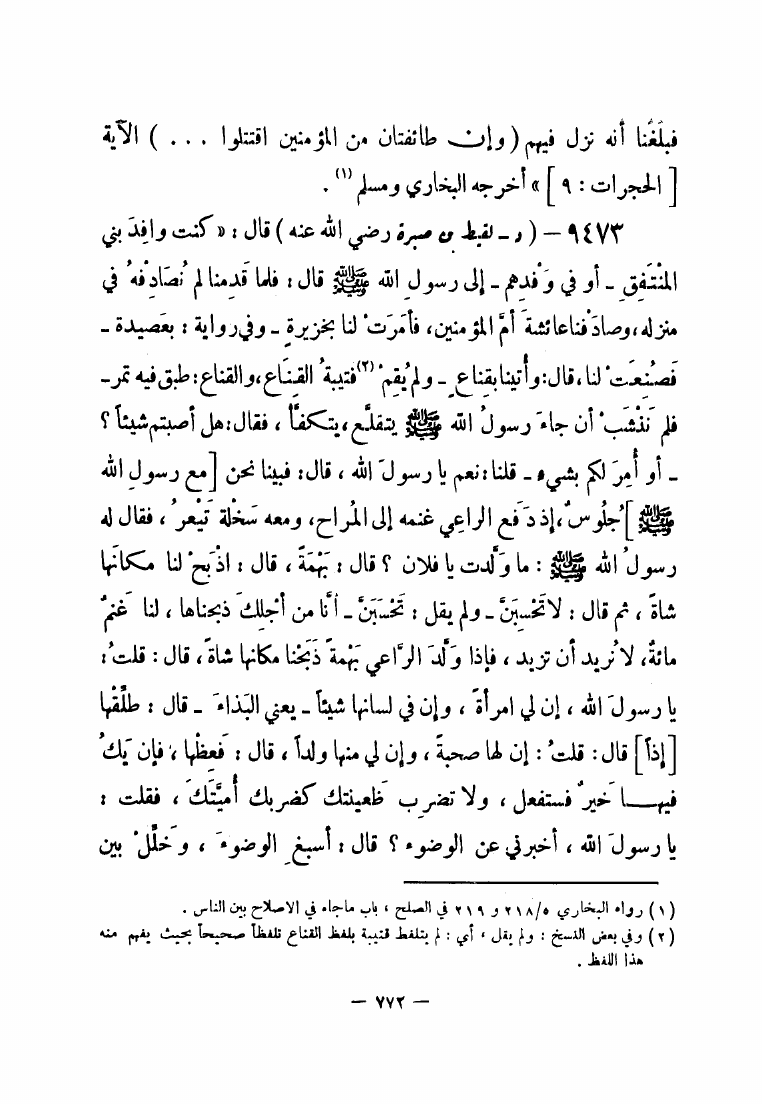 فبلَغَنا أنه نزل فيهم ( وإن طائفتان من المؤمنين اقتتلوا ... ) الآية
[ الحجرات : ٩ ] » أخرجه البخاري ومسلم (١) .
٩٤٧٣ – ( د - لقيط بن صبرة رضي الله عنه ) قال : « كنت وافِدَ بني
المنْتَفِقِ - أو في وَفْدِهم - إلى رسول الله ﷺ قال : فلما قَدِمنا لم نُصَادِفْهُ في
منزله ، وصادَفنا عائشةَ أمَّ المؤمنين ، فأمَرَتْ لنا بخزيرةٍ - وفي رواية : بعَصيدة -
فَصُنِعَتْ لنا ، قال : وأُتينا بقِناعٍ - ولم يُقِمْ (٢) قتيبةُ القِنَاع ، والقناع : طبق فيه تمر -
فلم نَنْشَبْ أن جاءَ رسولُ الله ﷺ يتقلَّع ، يتكفَّأُ ، فقال : هل أصبتم شيئاً ؟
- أو أُمِرَ لكم بشيء - قلنا : نعم يا رسولَ الله ، قال : فبينا نحن [ مع رسولِ الله
ﷺ ] جُلُوسٌ ، إذ دَفَع الراعِي غنمه إلى المُراح ، ومعه سَخْلَة تَيْعرُ ، فقال له
رسولُ الله ﷺ : ما وَلَّدت يا فلان ؟ قال : بَهْمَةً ، قال : اذْبَحْ لنا مكانَها
شاةً ، ثم قال : لا تَحْسِبَنَّ - ولم يقل : تَحْسَبَنَّ - أَنَّا من أجْلِكَ ذبحناها ، لنا غَنمٌ
مائةٌ ، لا نُريد أن تزيد ، فإذا وَلَّدَ الرَّاعي بَهْمةً ذَبَحْنا مكانها شاةً ، قال : قلتُ :
يا رسولَ الله ، إن لي امرأةً ، وإن في لسانها شيئاً - يعني البَذاءَ - قال : طَلِّقْها
[ إذاً ] قال : قلتُ : إن لها صحبةً ، وإن لي منها ولداً ، قال : فَعِظْها ، فإن يَكُ
فيها خَيرٌ فستفعل ، ولا تضرِب ظَعينتك كضربك أُمَيَّتَكَ ، فقلت :
يا رسولَ الله ، أخبرني عن الوضوء ؟ قال : أسبغِ الوضوءَ ، وخَلِّلْ بين
(١) رواه البخاري ٥/٢١٨ و ٢١٩ في الصلح ، باب ماجاء في الاصلاح بين الناس .
(٢) وفي بعض النسخ : ولم يقل ، أي : لم يتلفظ قتيبة بلفظ القناع تلفظاً صحيحاً بحيث يفهم منه
هذا اللفظ .
— ٧٧٢ —